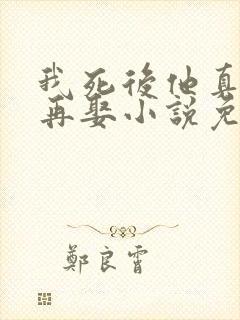 我死後他真
再娶小說免
鄭良霄